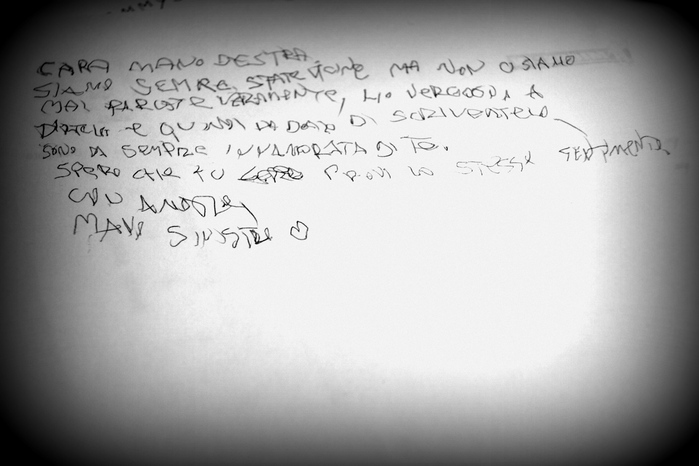 CARA MANO DESTRA
SIAMO SEMPRE STATE VICINE MA NON CI SIAMO
MAI PARLATE VERAMENTE, HO VERGOGNA A
DIRTELO E QUINDI HO DECISO DI SCRIVERTELO
SONO DA SEMPRE INNAMORATA DI TE.
SPERO CHE TU PROVI LO STESSO SENTIMENTO
CON AMORE
MANO SINISTRA ♡